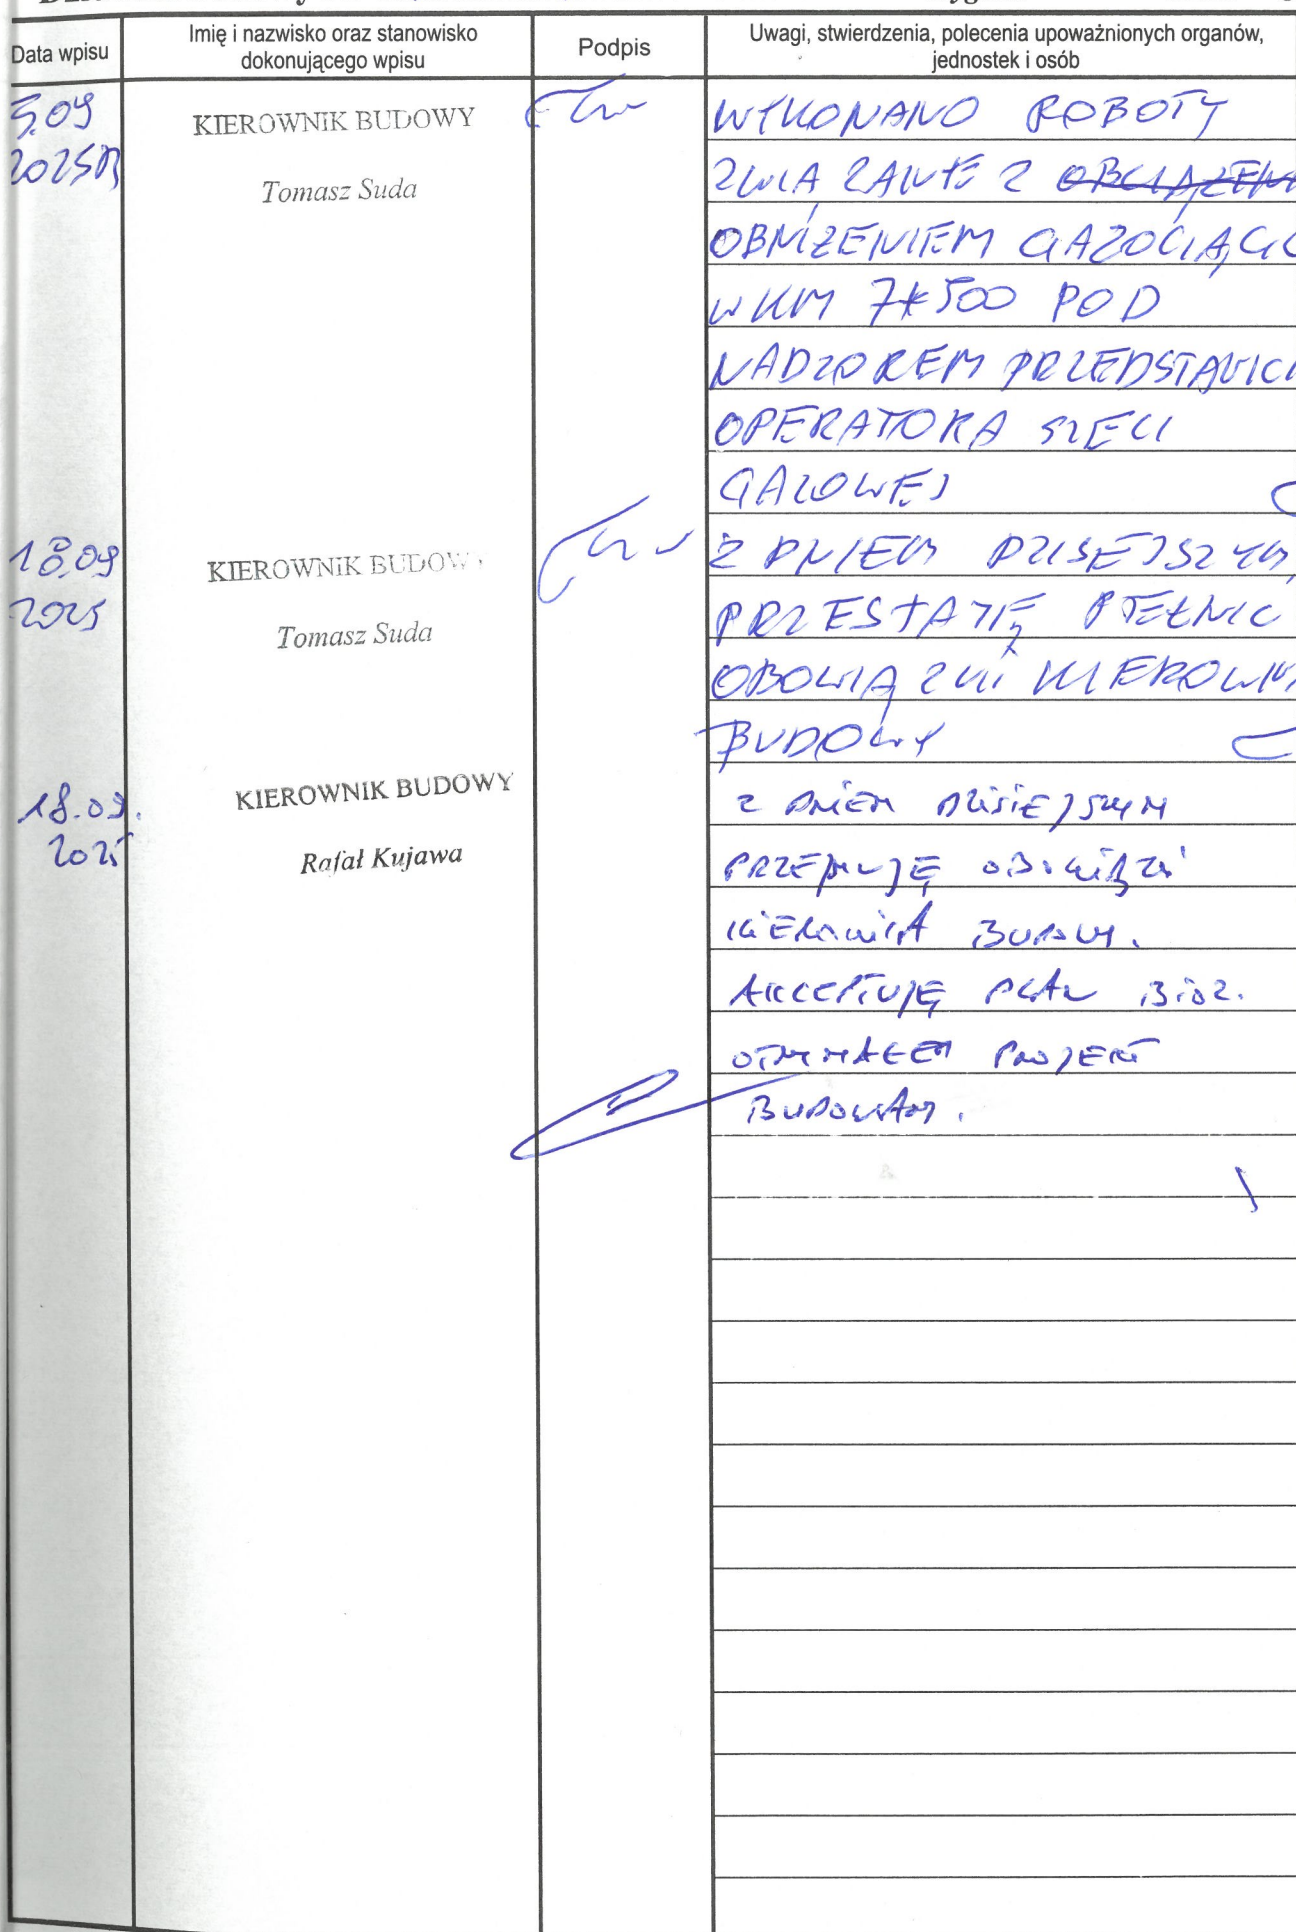 Data wpisu
Imię i nazwisko oraz stanowisko
dokonującego wpisu
Podpis
Uwagi, stwierdzenia, polecenia upoważnionych organów,
jednostek i osób
5.09
2025R
KIEROWNIK BUDOWY
Tomasz Suda
WYKONANO ROBOTY
ZWIĄZANE Z OBCIĄŻENI
OBNIŻENIEM GAZOCIĄGU
W KM 7+500 POD
NADZOREM PRZEDSTAWICI
OPERATORA SIECI
GAZOWEJ
18.09
2025
KIEROWNIK BUDOW
Tomasz Suda
Z DNIEM DZISEJSZYM
PRZESTAJĘ PEŁNIĆ
OBOWIĄZKI KIEROWNI
BUDOWY
18.09.
2025
KIEROWNIK BUDOWY
Rafał Kujawa
Z DNIEM DZISIEJSZYM
PRZEJMUJĘ OBOWIĄZKI
KIEROWNIKA BUDOWY.
AKCEPTUJĘ PLAN BIOZ.
OTRZYMAŁEM PROJEKT
BUDOWLANY.